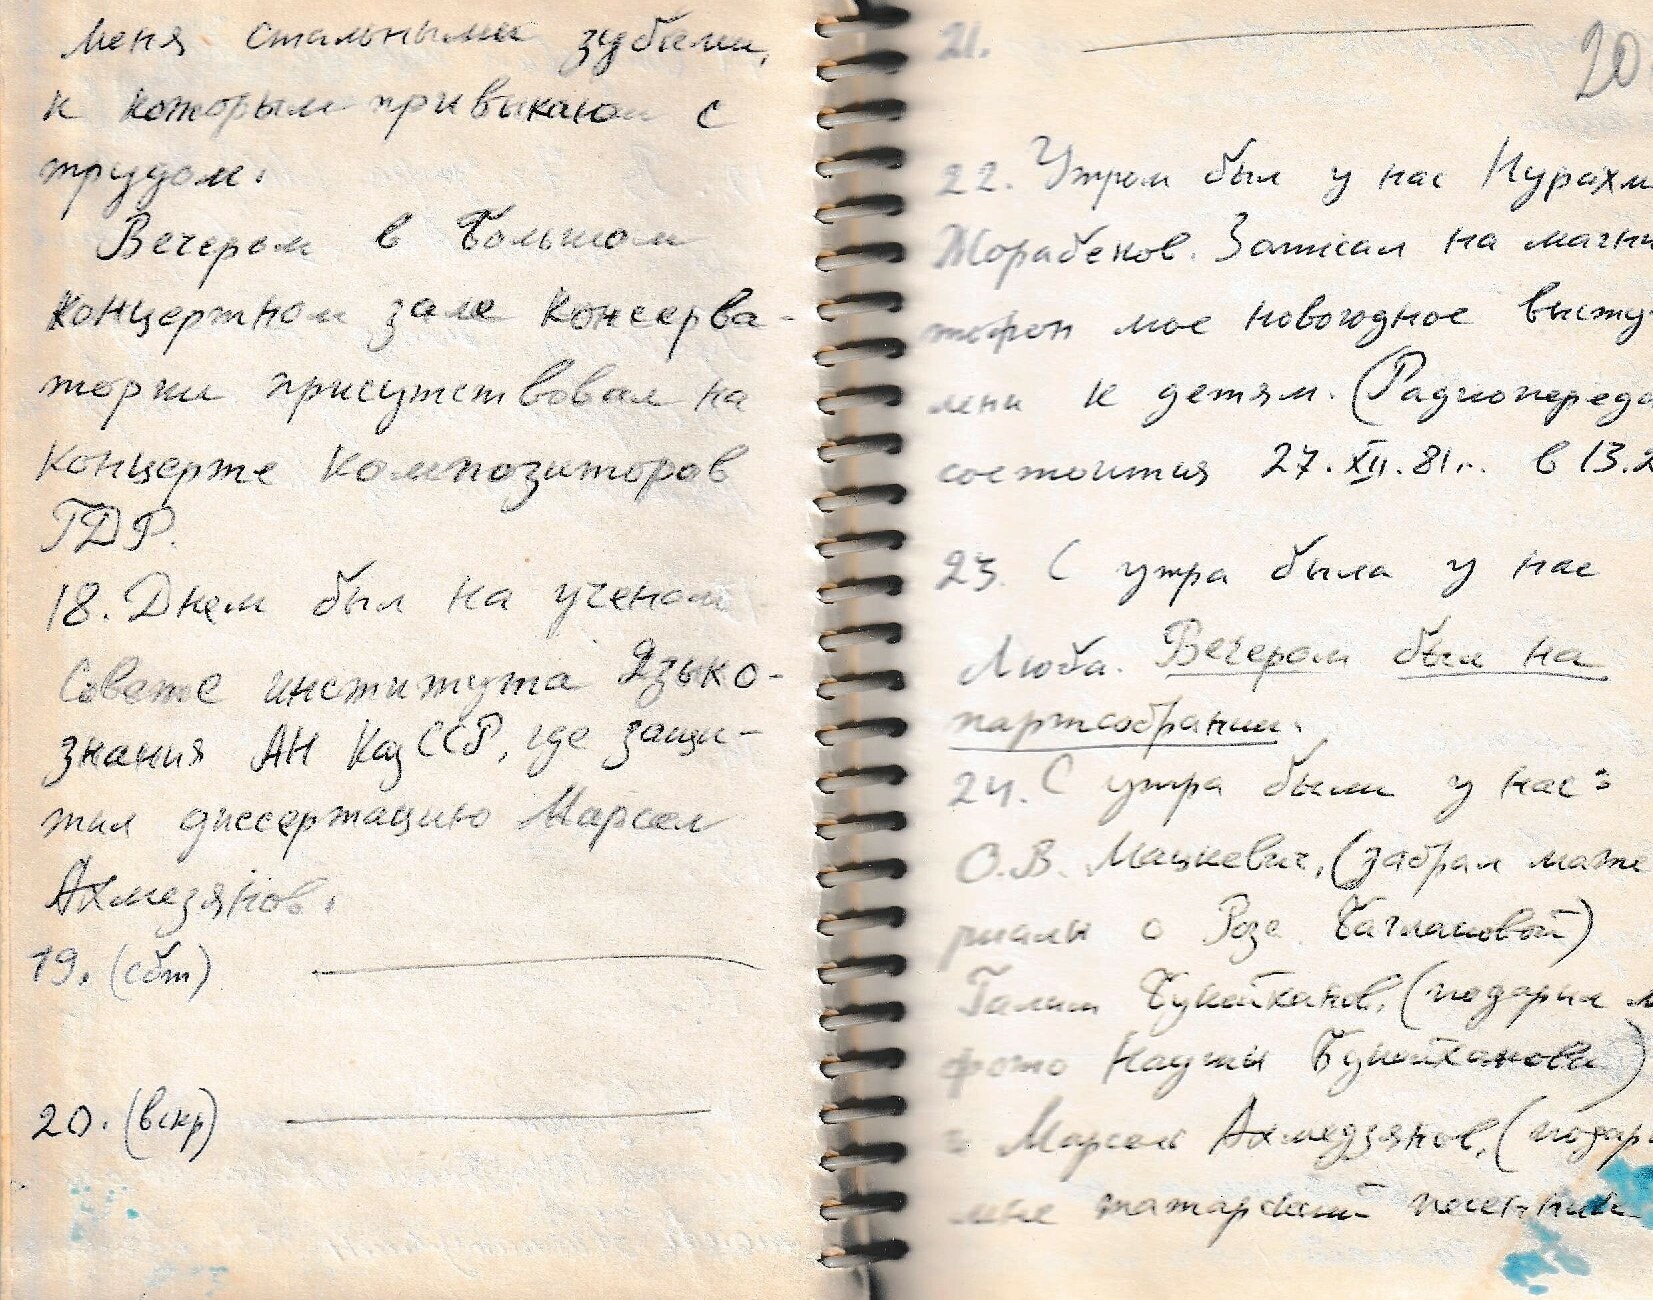 меня стальными зубами,
к которым привыкаю с
трудом.
Вечером в Большом
концертном зале консерва-
тории присутствовал на
концерте композиторов
ГДР.
18. Днем был на ученом
Совете института Языко-
знания АН КазССР, где защи-
тил диссертацию Марсел
Ахмедзянов.
19. (сбт)
20. (вскр)
21.
20
22. Утром был у нас Нурахм
Жорабеков. Записал на магни
тофон мое новогоднее высту-
лени к детям. (Радиопереда
состоится 27.XII.81г. в 13.2
23. С утра была у нас
Люба. Вечером был на
партсобрании.
24. С утра были у нас:
О.В. Мацкевич, (забрал мате
риалы о Розе Баглановой)
Галим Букейханов, (подарил м
фото Наджи Букейханова)
и Марсел Ахмедзянов, (подари
мне татарский песенник